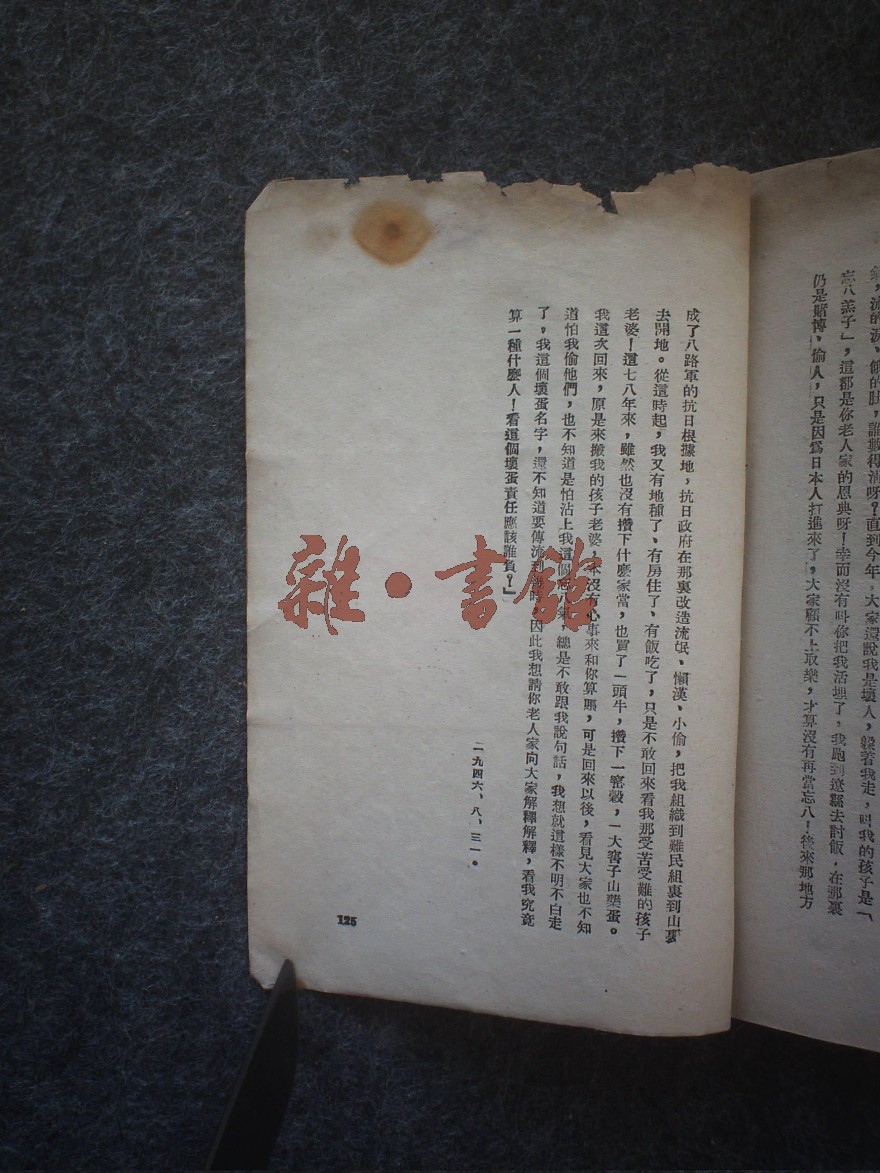 淚的淚、餓的肚，誰數得清呀？直到今年，大家還說我是壞人，躲著我走，叫我的孩子是「
忘八羔子」，這都是你老人家的恩典呀！幸而沒有叫你把我活埋了，我跑到遼縣去討飯，在那裏
仍是賭博、偷人，只是因爲日本人打進來了，大家顧不上取樂，才算沒有再當忘八！後來那地方
成了八路軍的抗日根據地，抗日政府在那裏改造流氓、懶漢、小偷，把我組織到難民組裏到山裏
去開地。從這時起，我又有地種了、有房住了、有飯吃了，只是不敢回來看我那受苦受難的孩子
老婆！這七八年來，雖然也沒有攢下什麼家當，也買了一頭牛，攢下一窖穀，一大窖子山藥蛋。
我這次回來，原是來搬我的孩子老婆，本沒有心事來和你算賬，可是回來以後，看見大家也不知
道怕我偷他們，也不知道是怕沾上我這個忘八氣，總是不敢跟我說句話，我想就這樣不明不白走
了，我這個壞蛋名字，還不知道要傳流到幾時，因此我想請你老人家向大家解釋解釋，看我究竟
算一種什麼人！看這個壞蛋責任應該誰負？」
一九四六、八、三一。
125
雜·書館